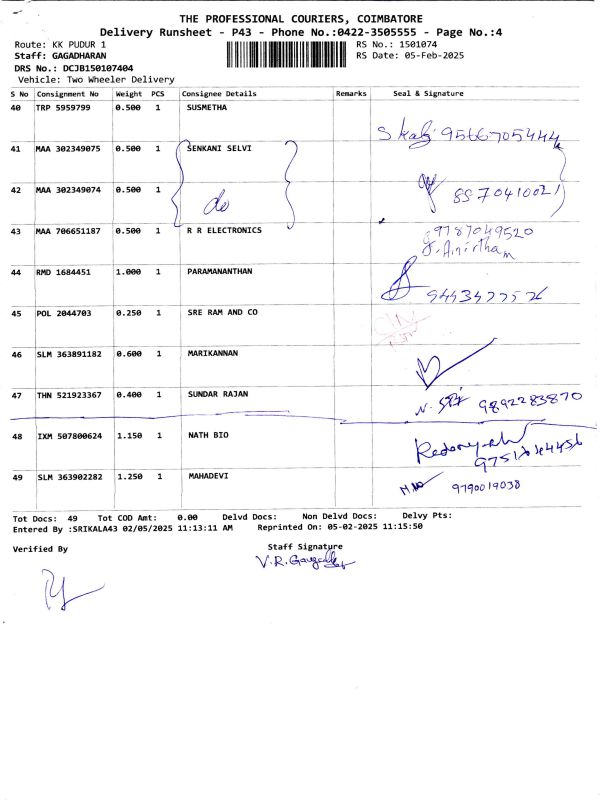 THE PROFESSIONAL COURIERS, COIMBATORE
Delivery Runsheet - P43 - Phone No.:0422-3505555 - Page No.:4
Route: KK PUDUR 1 RS No.: 1501074
Staff: GAGADHARAN RS Date: 05-Feb-2025
DRS No.: DCJB150107404
Vehicle: Two Wheeler Delivery
S No Consignment No Weight PCS Consignee Details Remarks Seal & Signature
40 TRP 5959799 0.500 1 SUSMETHA
9566705444
41 MAA 302349075 0.500 1 SENKANI SELVI
42 MAA 302349074 0.500 1
do 8870410021
43 MAA 706651187 0.500 1 R R ELECTRONICS 9787049520
44 RMD 1684451 1.000 1 PARAMANANTHAN
45 POL 2044703 0.250 1 SRE RAM AND CO
46 SLM 363891182 0.600 1 MARIKANNAN
47 THN 521923367 0.400 1 SUNDAR RAJAN
9892283870
48 IXM 507800624 1.150 1 NATH BIO
49 SLM 363902282 1.250 1 MAHADEVI
9790019038
Tot Docs: 49 Tot COD Amt: 0.00 Delvd Docs: Non Delvd Docs: Delvy Pts:
Entered By :SRIKALA43 02/05/2025 11:13:11 AM Reprinted On: 05-02-2025 11:15:50
Verified By Staff Signature